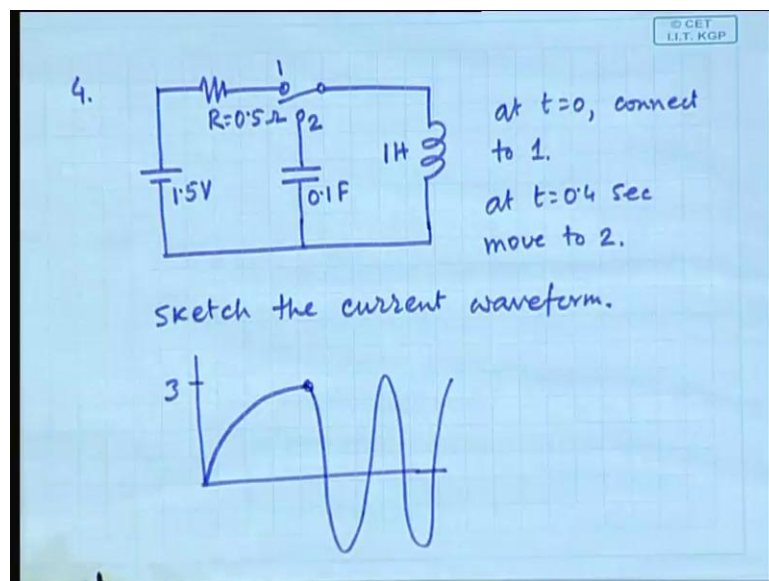 © CET
I.I.T. KGP
4.
1
R=0.5Ω
2
1H
1.5V
0.1F
at t=0, connect
to 1.
at t=0.4 sec
move to 2.
sketch the current waveform.
3